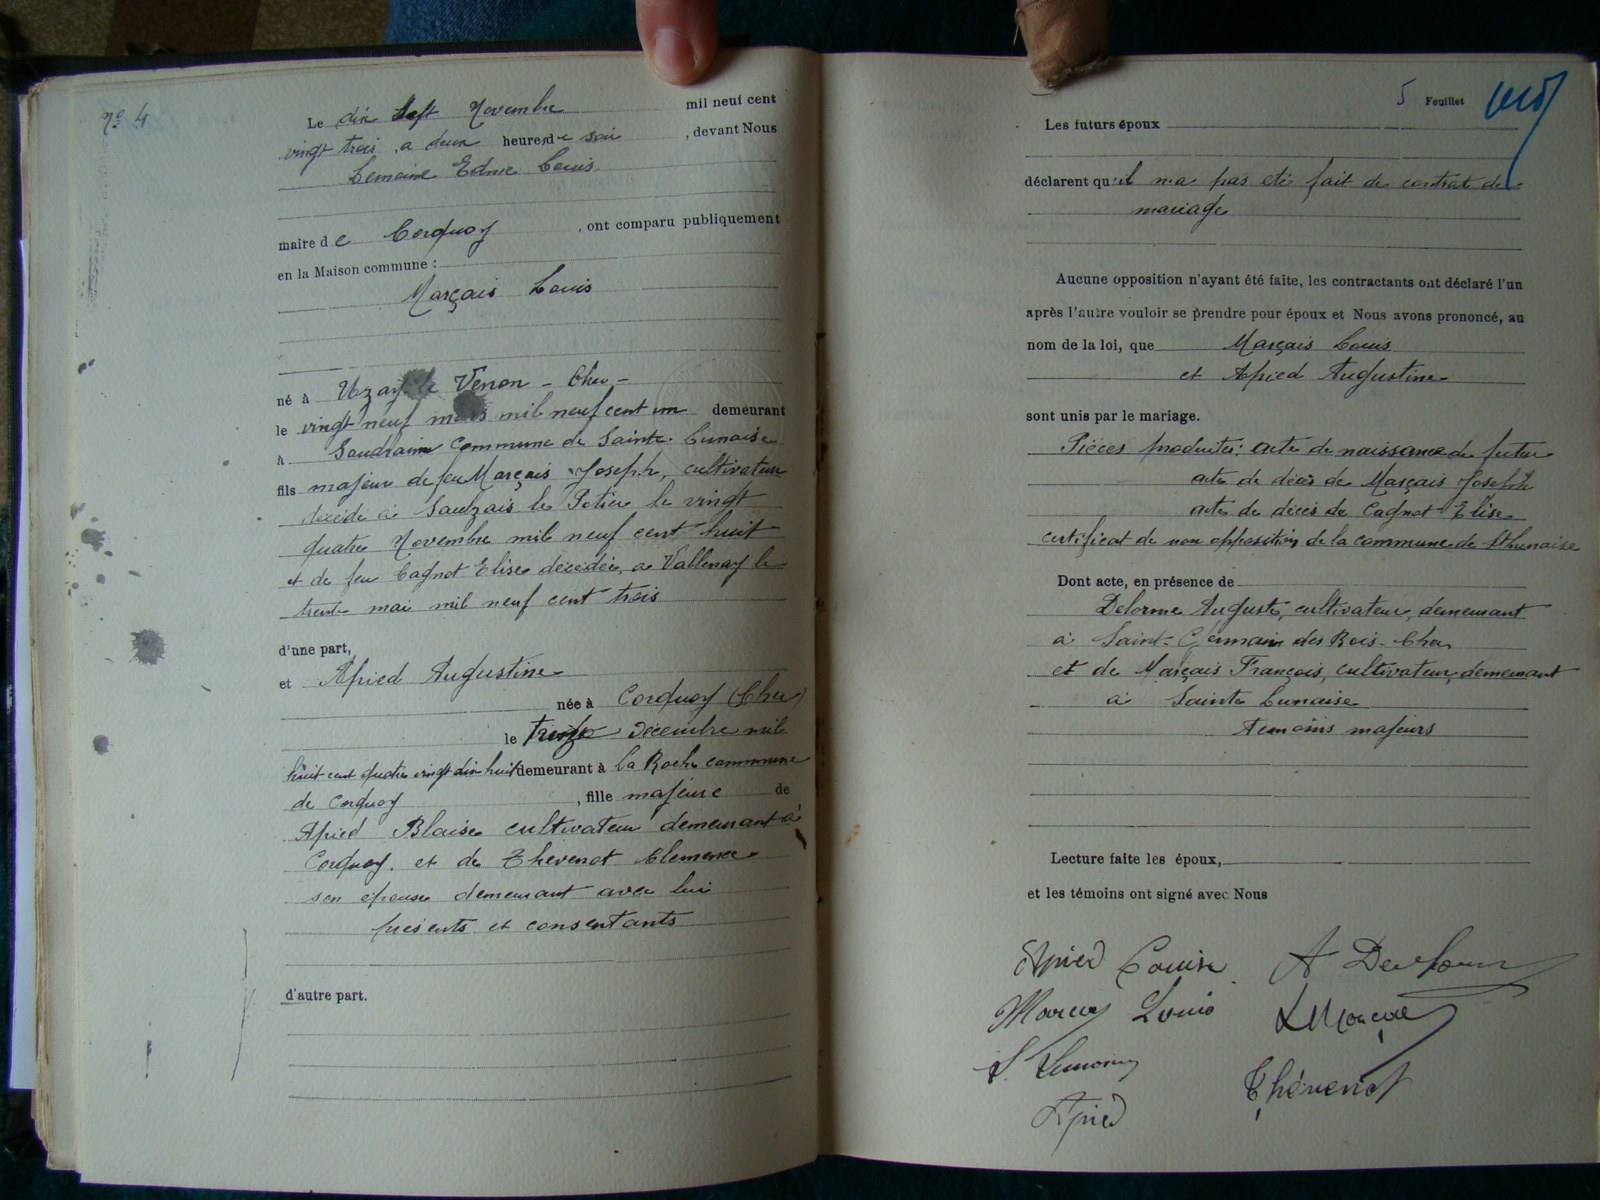 No 4
Le dix sept Novembre mil neuf cent
vingt trois, a deux heures de soir, devant Nous
Lemoine Edme Louis
maire de Corquoy, ont comparu publiquement
en la Maison commune :
Marçais Louis
né à Uzay le Venon - Cher -
le vingt neuf mars mil neuf cent un demeurant
à Soudrain Commune de Sainte Lunaise
fils majeur de feu Marçais Joseph, cultivateur
décédé à Saulzais le Potier le vingt
quatre Novembre mil neuf cent huit
et de feu Cagnot Elise décédée, a Vallenay le
trente mai mil neuf cent trois
d'une part,
et Apied Augustine
née à Corquoy (Cher)
le Décembre mil
huit cent quatre vingt dix huit demeurant à la Roche commune
de Corquoy, fille majeure de
Apied Blaise cultivateur demeurant à
Corquoy. et de Thevenot Clemence
son épouse demeurant avec lui
présents et consentants
d'autre part.
5 Feuillet
Les futurs époux
déclarent qu'il n'a pas été fait de contrat de
mariage
Aucune opposition n'ayant été faite, les contractants ont déclaré l'un
après l'autre vouloir se prendre pour époux et Nous avons prononcé, au
nom de la loi, que Marçais Louis
et Apied Augustine
sont unis par le mariage.
Pièces produites: acte de naissance du futur
acte de décès de Marçais Joseph
acte de décès de Cagnot Elise
certificat de non opposition de la commune de Ste Lunaise
Dont acte, en présence de
Delorme Auguste, cultivateur, demeurant
à Saint-Germain des Bois - Cher
et de Marçais François, cultivateur, demeurant
à Sainte Lunaise
témoins majeurs
Lecture faite les époux,
et les témoins ont signé avec Nous
Apied Louise A Delorme
Marçais Louis
Thévenot
Apied